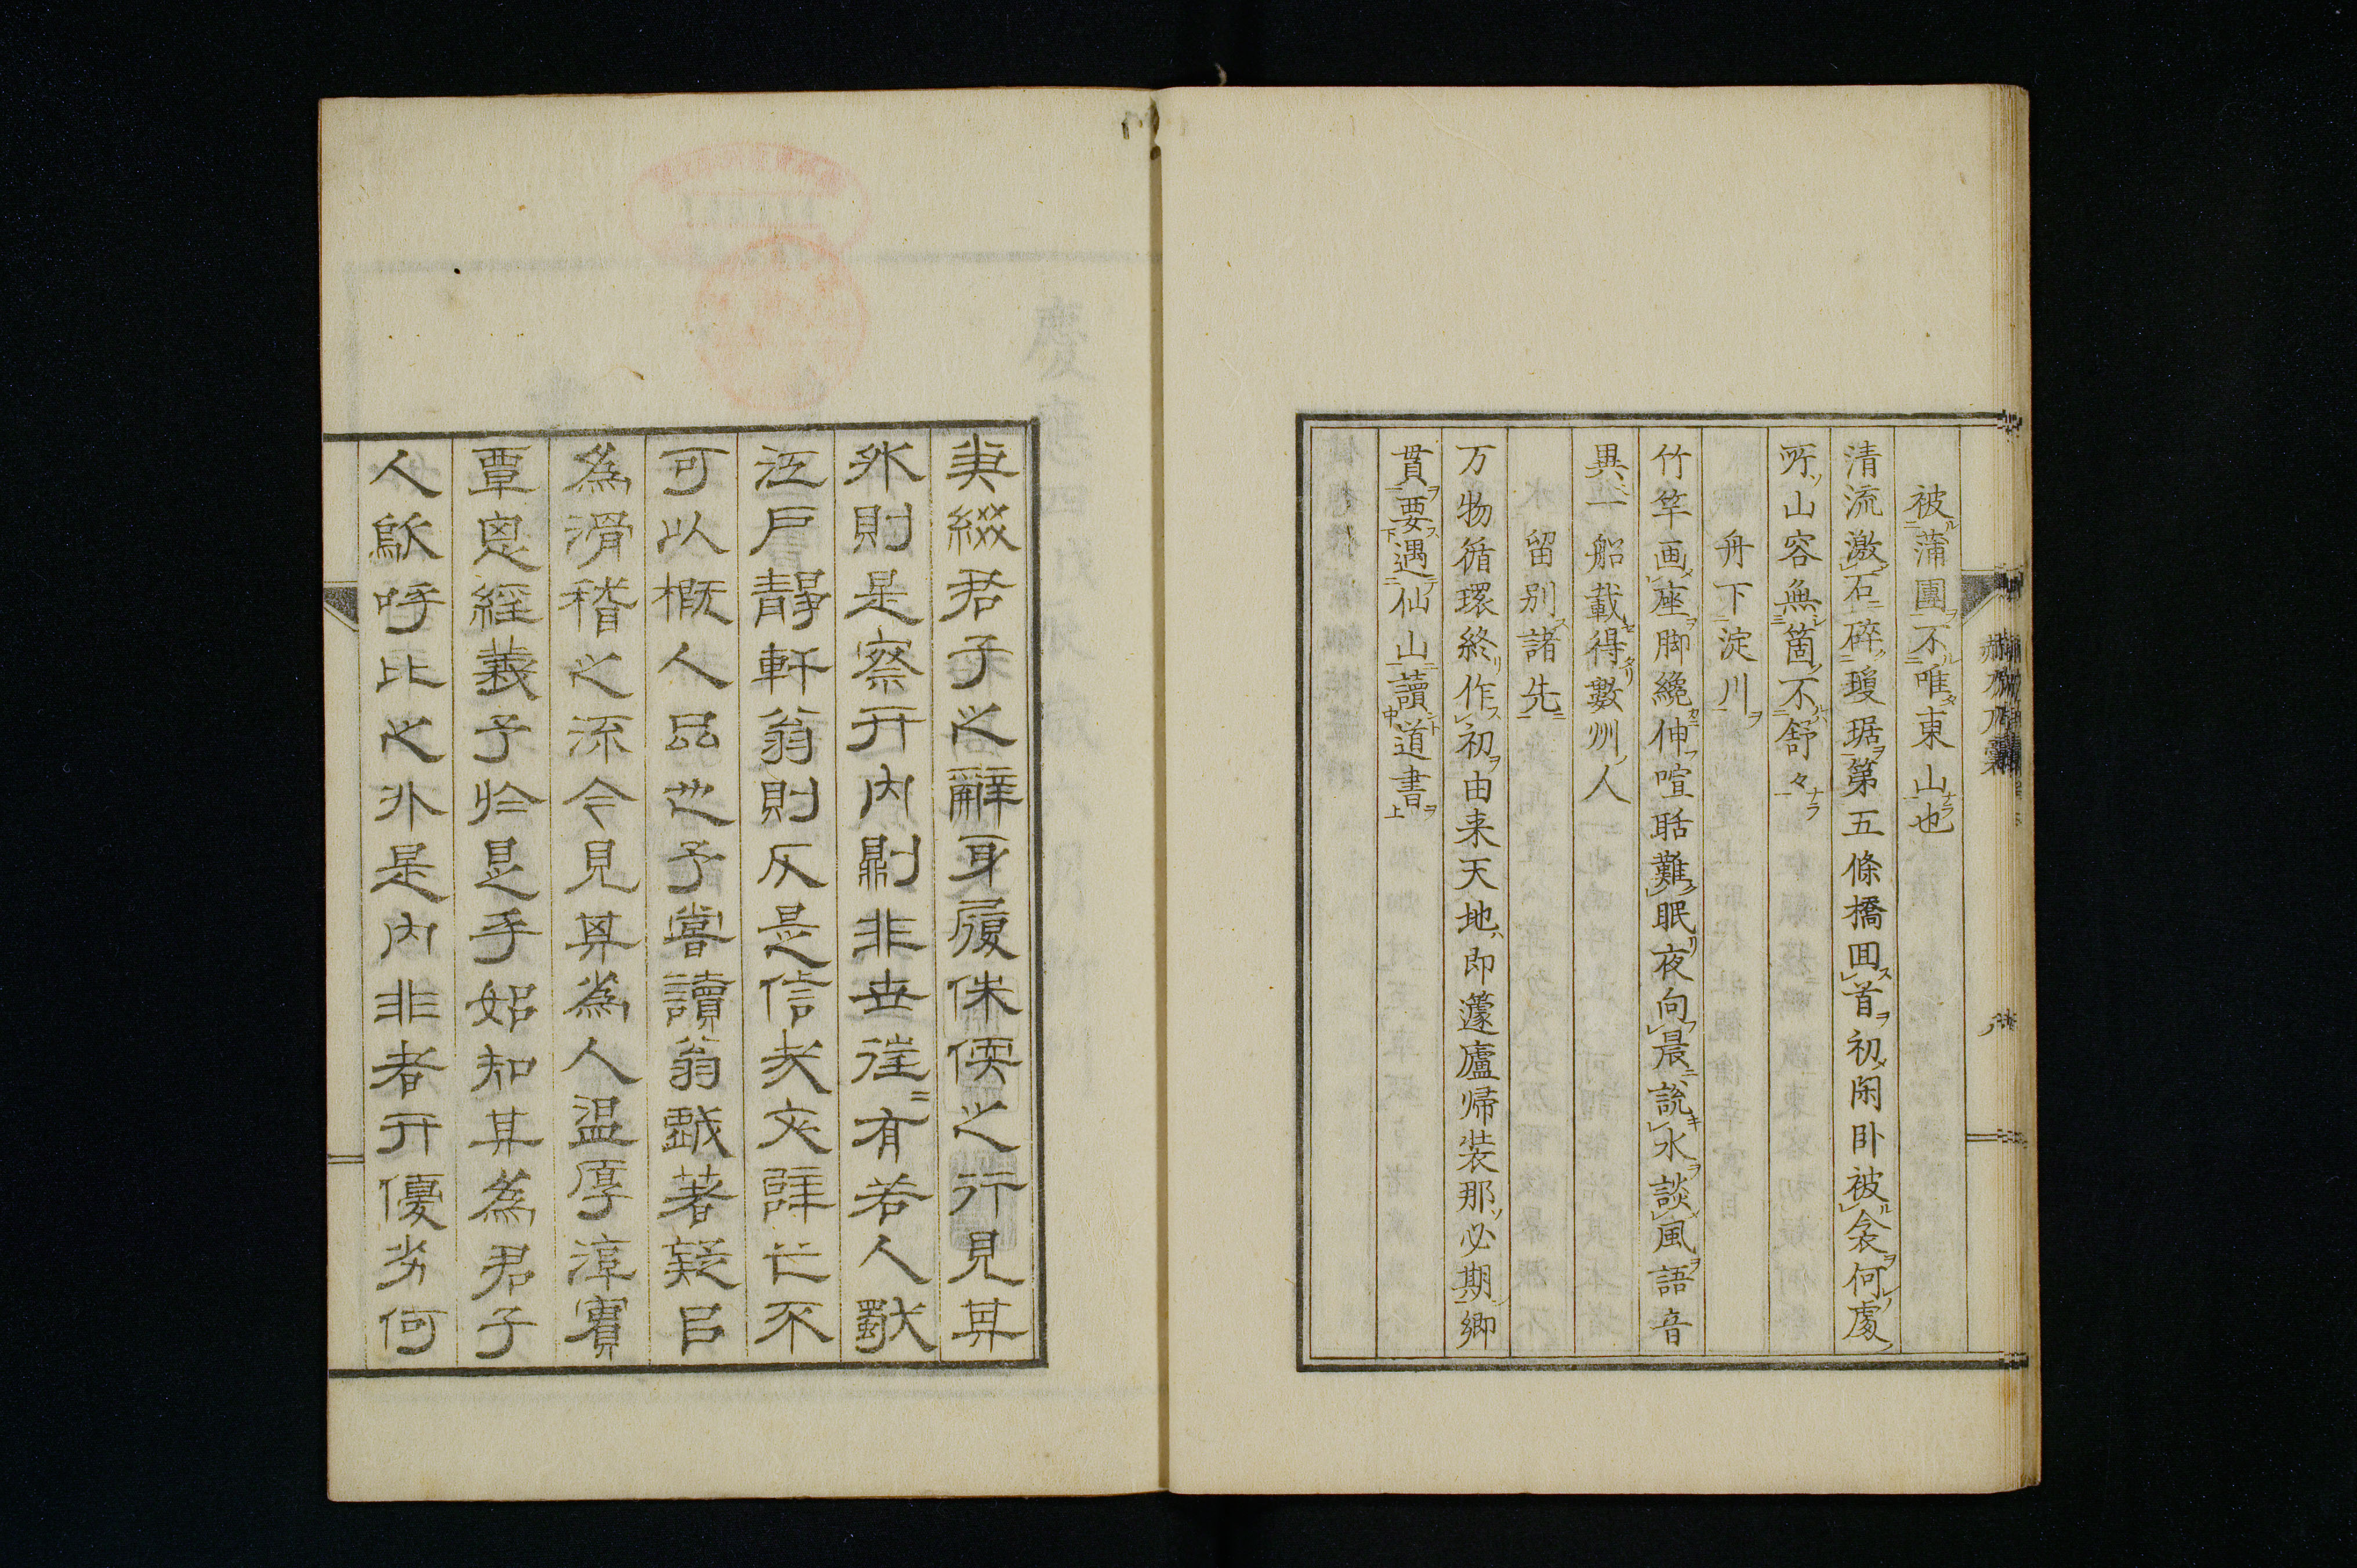 被蒲團不唯東山也
清流激石碎瓊琚第五條橋囬首初閑卧被衾何處
所山容無箇不舒々
舟下淀川
竹竿画座脚纔伸喧聒難眠夜向晨説水談風語音
異一船載得數州人
留別諸先
万物循環終作初由来天地即蘧廬帰装那必期郷
貫要遇仙山讀道書
夷綴君子之辭身履侏㑌之行見其
外則是察其内則非世往〻有若人歟
江戸靜軒翁則反是信矣文辭亡不
可以概人品也予嘗讀翁戯著疑以
為滑稽之流今見其為人温厚淳實
覃思經義予於是乎始知其為君子
人歟呼比之外是内非者其優劣何